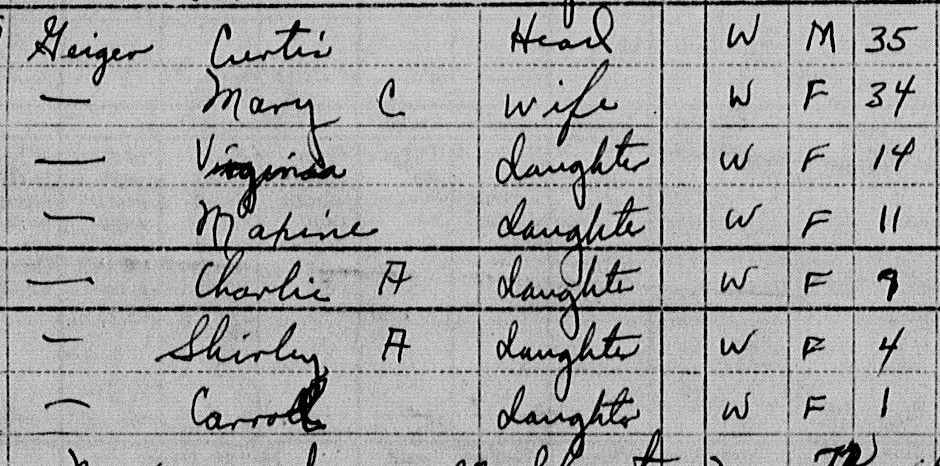 Geiger Curtis Head W M 35
— Mary C Wife W F 34
— Virginia daughter W F 14
— Maxine daughter W F 11
— Charlie A daughter W F 9
— Shirley A daughter W F 4
— Carroll daughter W F 1